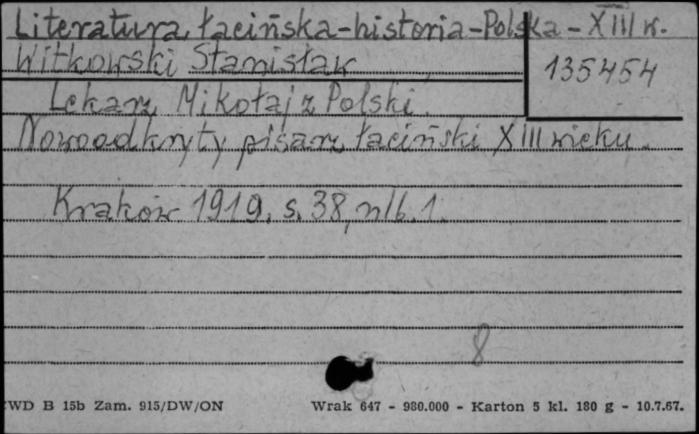 Literatura łacińska-historia-Polska-XIII w.
Witkowski Stanisław
135454
Lekarz Mikołaj z Polski.
Nowoodkryty pisarz łaciński XIII wieku.
Kraków 1919. s. 38, nlb. 1.
8
WD B 15b Zam. 915/DW/ON Wrak 647 - 980.000 - Karton 5 kl. 180 g - 10.7.67.